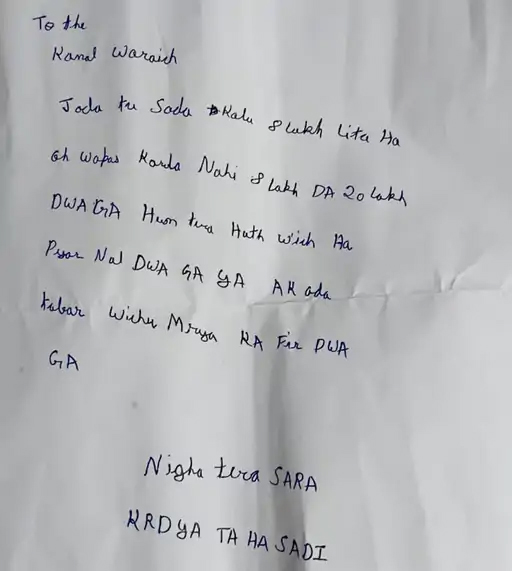 To the
Kamal Waraich
Joda tu Sada Kalu 8 lakh lita Ha
Oh wapas Karda Nahi 8 lakh DA 20 lakh
DWA GA Hun tera Hath wich Ha
Pyar Nal DWA GA YA AK ada
tabar Wichu Mrwa KA Fir DWA
GA
Nigha tera SARA
KRDYA TA HA SADI